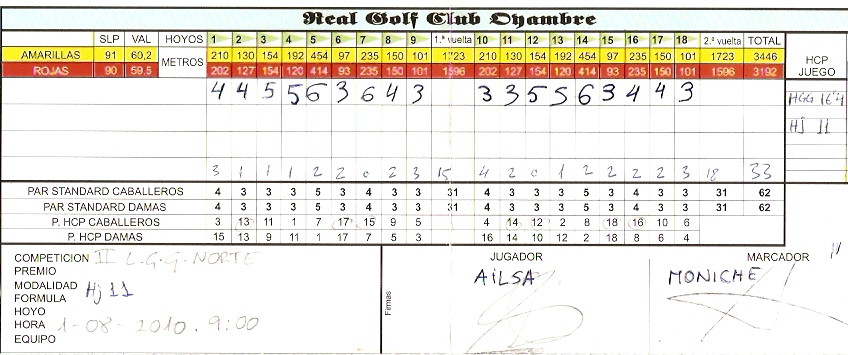 Real Golf Club Oyambre
SLP VAL HOYOS 1 2 3 4 5 6 7 8 9 1.ª vuelta 10 11 12 13 14 15 16 17 18 2.ª vuelta TOTAL HCP JUEGO
AMARILLAS 91 60,2 METROS 210 130 154 192 454 97 235 150 101 1723 210 130 154 192 454 97 235 150 101 1723 3446
ROJAS 90 59,5 202 127 154 120 414 93 235 150 101 1596 202 127 154 120 414 93 235 150 101 1596 3192
4 4 5 5 6 3 6 4 3 3 3 5 5 6 3 4 4 3 HGG 16'4
HJ 11
3 1 1 1 2 2 0 2 3 15 4 2 0 1 2 2 2 2 3 18 33
PAR STANDARD CABALLEROS 4 3 3 3 5 3 4 3 3 31 4 3 3 3 5 3 4 3 3 31 62
PAR STANDARD DAMAS 4 3 3 3 5 3 4 3 3 31 4 3 3 3 5 3 4 3 3 31 62
P. HCP CABALLEROS 3 13 11 1 7 17 15 9 5 4 14 12 2 8 18 16 10 6
P. HCP DAMAS 15 13 9 11 1 17 7 5 3 16 14 10 12 2 18 8 6 4
COMPETICION II L.G.G. NORTE
PREMIO
MODALIDAD Hj 11
FORMULA
HOYO
HORA 1-08-2010. 9:00
EQUIPO
Firmas
JUGADOR
AILSA
MARCADOR
MONICHE